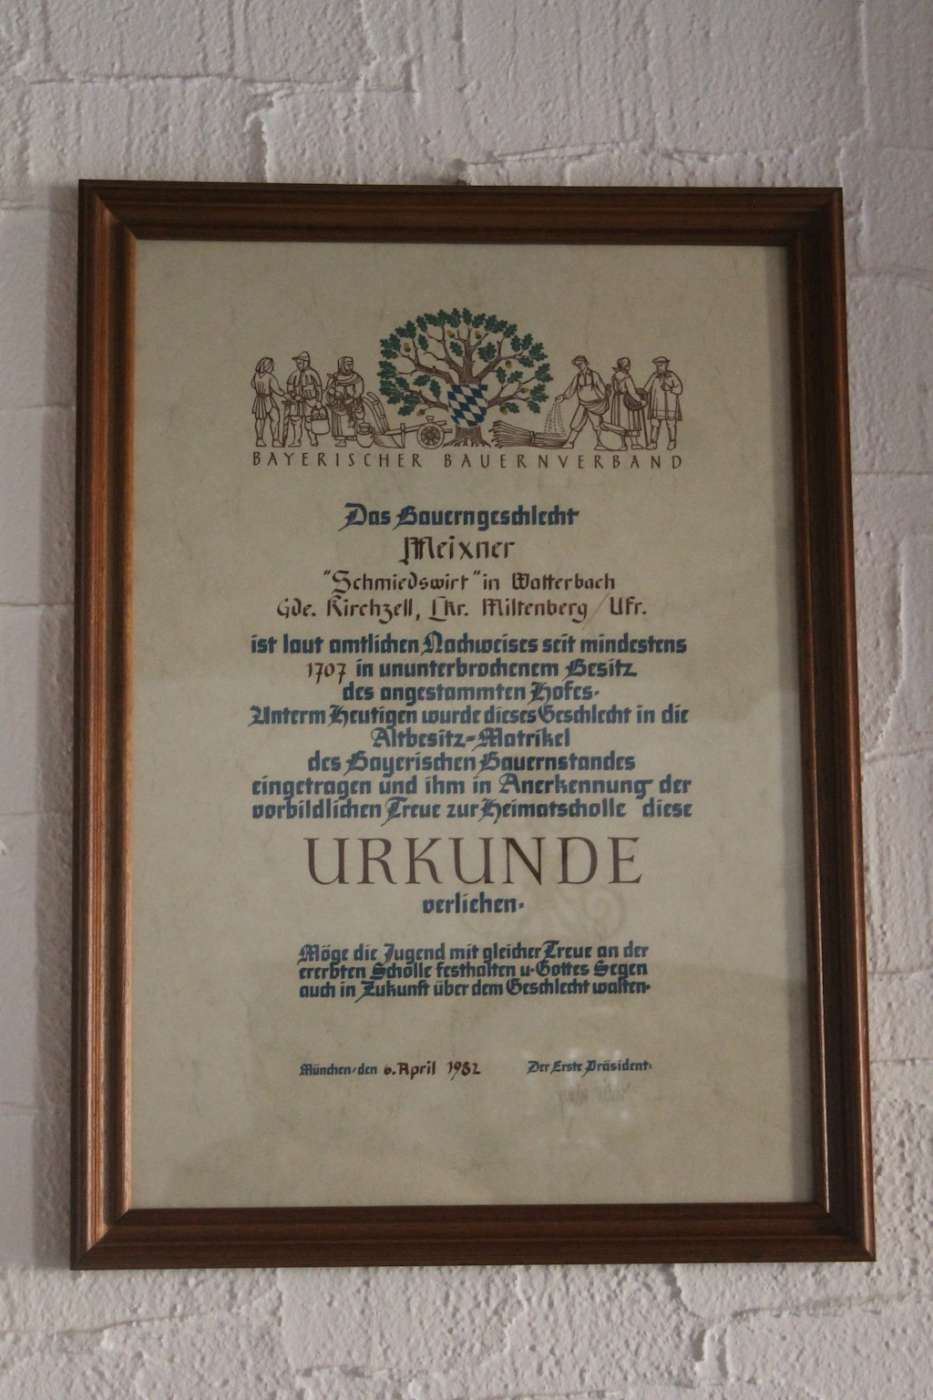 BAYERISCHER BAUERNVERBAND
Das Bauerngeschlecht
Meixner
"Schmiedswirt" in Watterbach
Gde. Kirchzell, Lkr. Miltenberg / Ufr.
ist laut amtlichen Nachweises seit mindestens
1707 in ununterbrochenem Besitz
des angestammten Hofes.
Unterm Heutigen wurde dieses Geschlecht in die
Altbesitz-Matrikel
des Bayerischen Bauernstandes
eingetragen und ihm in Anerkennung der
vorbildlichen Treue zur Heimatscholle diese
URKUNDE
verliehen.
Möge die Jugend mit gleicher Treue an der
ererbten Scholle festhalten u. Gottes Segen
auch in Zukunft über dem Geschlecht walten.
München, den 6. April 1982 Der Erste Präsident.